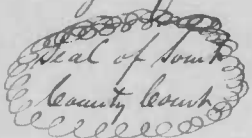 Seal of Court
County Court